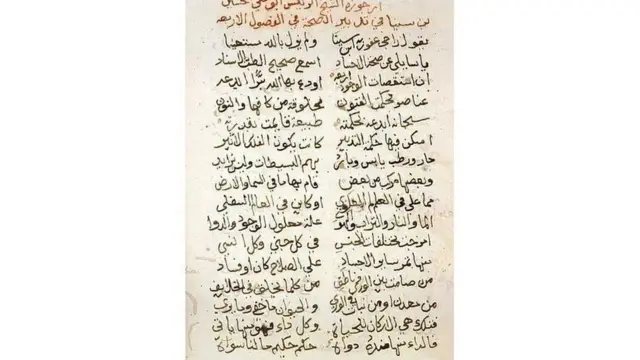 ارجوزة الشيخ الرئيس ابو علي حسين
بن سينا في تدبير الصحة في الفصول الاربعه
يقول راجي عفو ربه ابن سينا ولم يزل بالله مستعينا
يا سايلي عن صحة الاجساد اسمع صحيح الطب بالاسناد
ان استقصات الوجود اربعه اودع بها الله سرا ابدعه
عناصر تحكمت الفنون مخلوقة من كافها والنون
سبحانه ابدعه بحكمته طبيعة قامت بقدرته
امكن فيها حكمة التدبير كانت بكون الفلك الاثير
حار ورطب يابس وبارد بهم البسيطات وليس زايد
وبعضها مركب من بعض قام بها ما في السما والارض
مما على في العالم العلوي او كاين في العالم السفلي
الما والنار والتراب والهوا علة معلول الوجود والدوا
بمختلفات الجنس في كل جني وكل انسي
منها ساير الاجساد على الصلاح كان او فساد
من صامت بين الورى وناطق من كلما يخلق في الخلايق
من معدن او من نبات في الورى والحيوان ما خفي وما يرى
هي الاركان للحياة وكل داء فهو منها ياتي
فالداء منها دواه حكم حكيم سواه